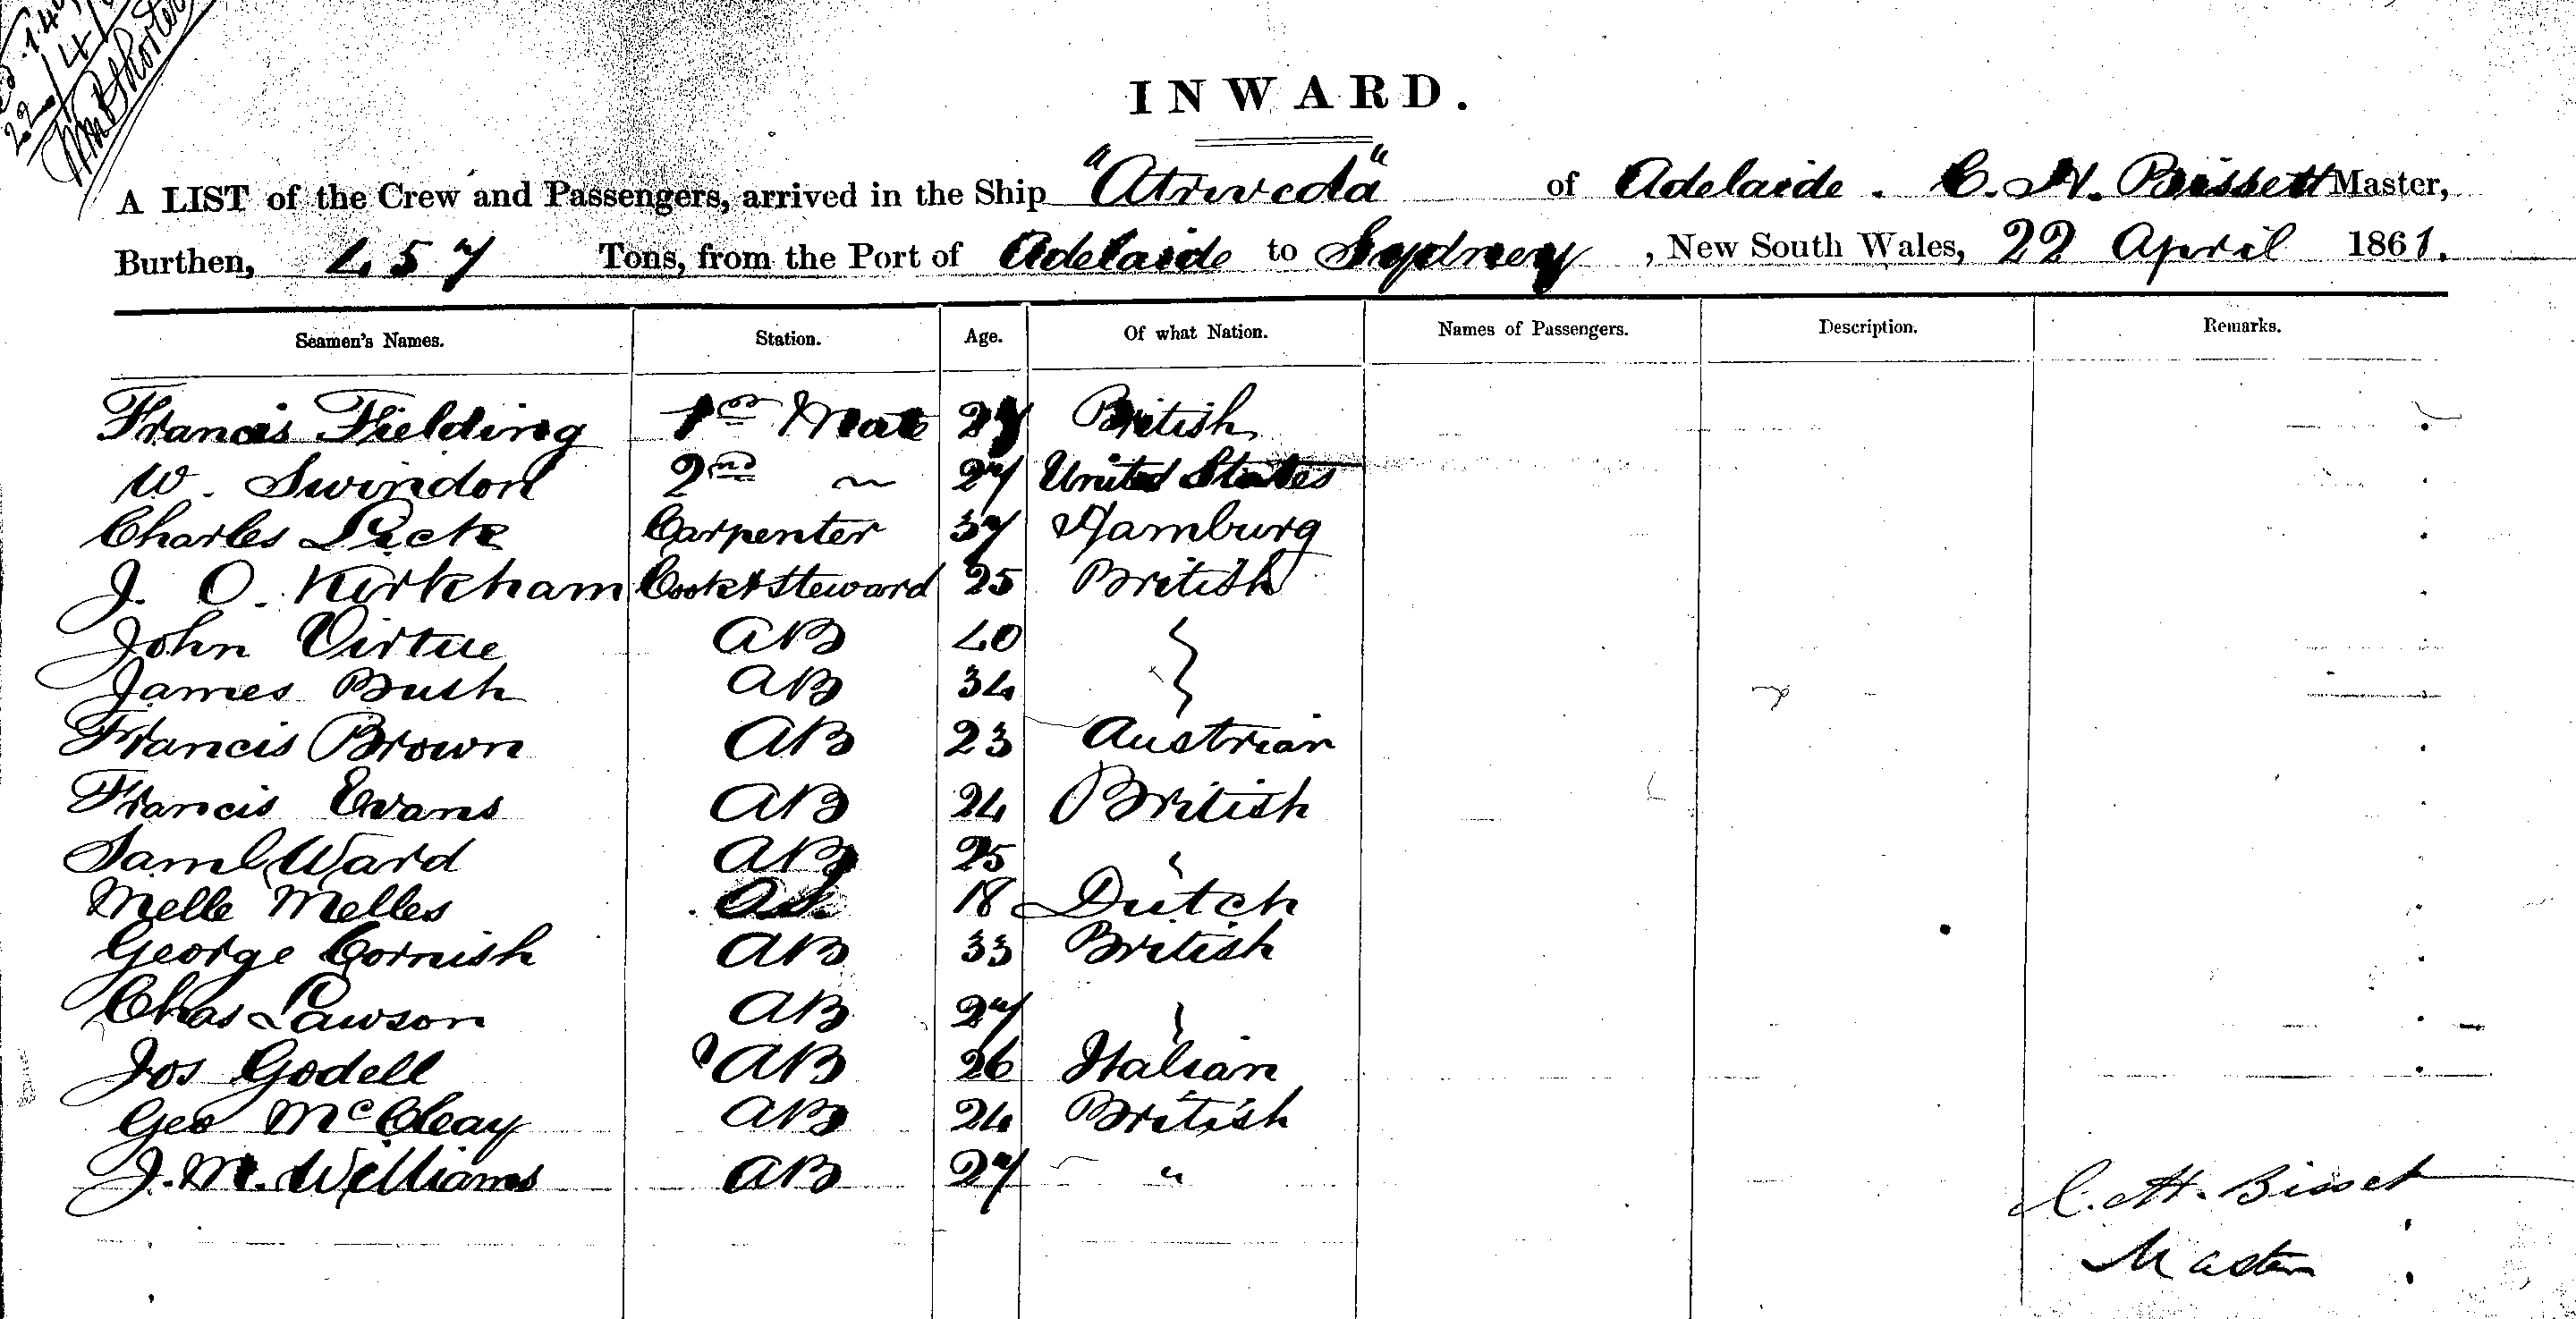 22/4/
INWARD.
A LIST of the Crew and Passengers, arrived in the Ship "Atrevida" of Adelaide. C. H. Bissett Master,
Burthen, 457 Tons, from the Port of Adelaide to Sydney, New South Wales, 22 April 1861.
Seamen's Names. Station. Age. Of what Nation. Names of Passengers. Description. Remarks.
Francis Fielding 1st Mate 27 British
W. Swindon 2nd " 27 United States
Charles Peck Carpenter 37 Hamburg
J. O. Kirkham Cook & Steward 25 British
John Virtue AB 40
James Bush AB 34
Francis Brown AB 23 Austrian
Francis Evans AB 24 British
Saml Ward AB 25 "
Melle Melles OS. 18 Dutch
George Cornish AB 33 British
Chas Lawson AB 27 "
Jos Godell AB 26 Italian
Geo McCleay AB 24 British
J. M. Williams AB 27 "
C. H. Bisset
Master